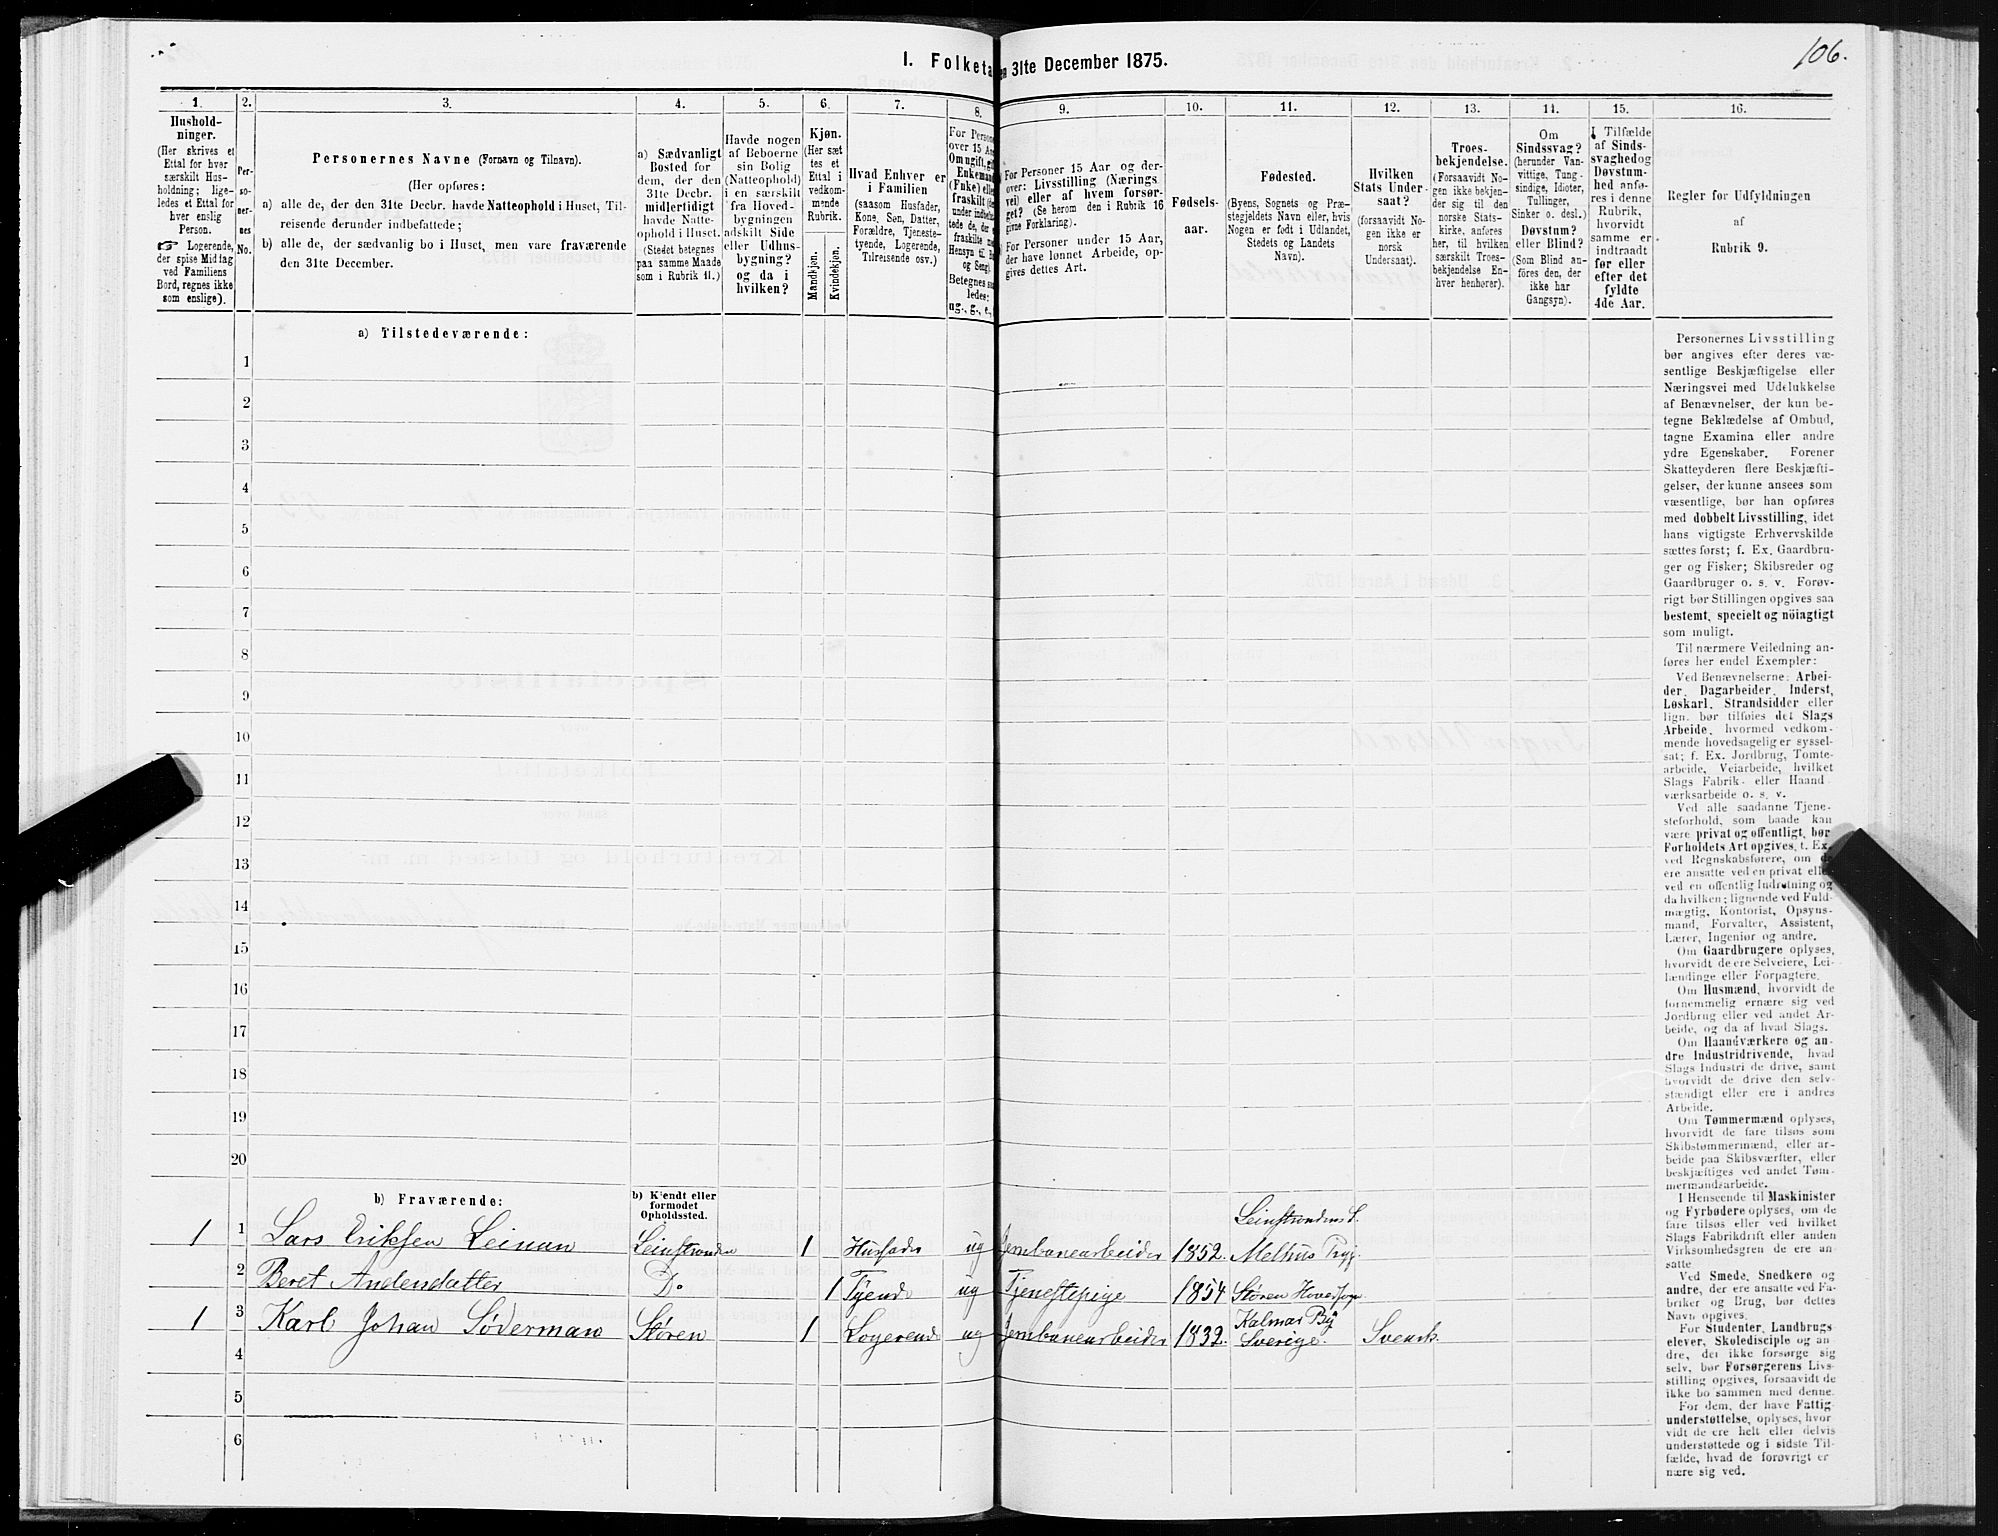 106.
I. Folketa
en 31te December 1875.
1.
2.
3.
4.
5.
6.
7.
8.
9.
10.
11.
12.
13.
14.
15.
16.
Hushold-
ninger.
(Her skrives et
Ettal for hver
særskilt Hus-
holdning; lige-
ledes et Ettal for
hver enslig
Person.
☞ Logerende,
der spise Middag
ved Familiens
Bord, regnes ikke
som enslige).
Per-
so-
ner-
nes
No.
Personernes Navne (Fornavn og Tilnavn).
(Her opføres:
a) alle de, der den 31te Decbr. havde Natteophold i Huset, Til-
reisende derunder indbefattede;
b) alle de, der sædvanlig bo i Huset, men vare fraværende
den 31te December.
a) Sædvanligt
Bosted for
dem, der den
31te Decbr.
midlertidigt
havde Natte-
ophold i Huset.
(Stedet betegnes
paa samme Maade
som i Rubrik 11.)
Havde nogen
af Beboerne
sin Bolig
(Natteophold)
i en særskilt
fra Hoved-
bygningen
adskilt Side
eller Udhus-
bygning?
og da i
hvilken?
Kjøn.
(Her sæt
tes et
Ettal i
vedkom-
mende
Rubrik.
Mandkjøn.
Kvindekjøn.
Hvad Enhver er
i Familien
(saasom Husfader,
Kone, Søn, Datter,
Forældre, Tjeneste-
tyende, Logerende,
Tilreisende osv.)
For Person
over 15 Aa
Om ugift, gi
Enkemand
(Enke) elle
fraskilt
under indbefat
tede de, der
fraskilte
Hensyn til
og Seng).
Betegnes saa
ledes:
ug., g., e.,
For Personer 15 Aar og der-
over: Livsstilling (Nærings
vei) eller af hvem forsør-
get? (Se herom den i Rubrik 16
givne Forklaring).
For Personer under 15 Aar,
der have lønnet Arbeide, op-
gives dettes Art.
Fødsels-
aar.
Fødested.
(Byens, Sognets og Præ-
stegjeldets Navn eller, hvis
Nogen er født i Udlandet,
Stedets og Landets
Navn).
Hvilken
Stats Under-
saat?
(forsaavidt No-
gen ikke er
norsk
Undersaat).
Troes-
bekjendelse.
(Forsaavidt No-
gen ikke bekjen-
der sig til den
norske Stats-
kirke, anføres
her, til hvilken
særskilt Troes-
bekjendelse En-
hver henhører).
Om
Sindssvag?
(herunder Van-
vittige, Tung-
sindige, Idioter,
Tullinger,
Sinker o. desl.)
Døvstum?
eller Blind?
(Som Blind an-
føres den, der
ikke har
Gangsyn).
I Tilfælde
af Sinds-
svaghed og
Døvstum-
hed anfø-
res i denne
Rubrik,
hvorvidt
samme er
indtraadt
før eller
efter det
fyldte
4de Aar.
Regler for Udfyldningen
af
Rubrik 9.
a) Tilstedeværende:
1
2
3
4
5
6
7
8
9
10
11
12
13
14
15
16
17
18
19
20
Personernes Livsstilling
bør angives efter deres væ-
sentlige Beskjæftigelse eller
Næringsvei med Udelukkelse
af Benævnelser, der kun be-
tegne Beklædelse af Ombud,
tagne Examina eller andre
ydre Egenskaber. Forener
Skatteyderen flere Beskjæfti-
gelser, der kunne ansees som
væsentlige, bør han opføres
med dobbelt Livsstilling, idet
hans vigtigste Erhvervskilde
sættes først; f. Ex. Gaardbru-
ger og Fisker; Skibsreder og
Gaardbruger o. s. v. Forøv-
rigt bør Stillingen opgives saa
bestemt, specielt og nöiagtigt
som muligt.
Til nærmere Veiledning an-
føres her endel Exempler:
Ved Benævnelserne: Arbei-
der, Dagarbeider, Inderst,
Løskarl, Strandsidder eller
lign. bør tilføies det Slags
Arbeide, hvormed vedkom-
mende hovedsagelig er syssel-
sat; f. Ex. Jordbrug, Tomte-
arbeide, Veiarbeide, hvilket
Slags Fabrik- eller Haand
værksarbeide o. s. v.
Ved alle saadanne Tjene-
steforhold, som baade kan
være privat og offentligt, bør
Forholdets Art opgives, f. Ex.
ved Regnskabsførere, om de
ere ansatte ved en privat eller
ved en offentlig Indretning og
da hvilken; lignende ved Fuld-
mægtig, Kontorist, Opsyns-
mand, Forvalter, Assistent,
Lærer, Ingeniør og andre.
Om Gaardbrugere oplyses,
hvorvidt de ere Selveiere, Lei-
lændinge eller Forpagtere.
Om Husmænd, hvorvidt de
fornemmelig ernære sig ved
Jordbrug eller ved andet Ar-
beide, og da af hvad Slags.
Om Haandværkere og an-
dre Industridrivende, hvad
Slags Industri de drive, samt
hvorvidt de drive den selv-
stændigt eller ere i andres
Arbeide.
Om Tømmermænd oplyses,
hvorvidt de fare tilsøs som
Skibstømmermænd, eller ar-
beide paa Skibsværfter, eller
beskjæftiges ved andet Tøm-
mermandsarbeide.
I Henseende til Maskinister
og Fyrbødere oplyses, om de
fare tilsøs eller ved hvilket
Slags Fabrikdrift eller anden
Virksomhedsgren de ere an-
satte.
Ved Smede, Snedkere og
andre, der ere ansatte ved Fa-
briker og Brug, bør dettes
Navn opgives.
For Studenter, Landbrugs-
elever, Skoledisciple og an-
dre, der ikke forsørge sig
selv, bør Forsørgerens Livs-
stilling opgives, forsaavidt de
ikke bo sammen med denne.
For dem, der have Fattig-
understøttelse, oplyses, hvor-
vidt de ere helt eller delvis
understøttede og i sidste Til-
fælde, hvad de forøvrigt er-
nære sig ved.
b) Fraværende:
b) Kjendt eller
formodet
Opholdssted.
Leinstrandens S.
1 1 Lars Eriksen Leinan Leinstranden 1 Husfader ug Jernbanearbeider 1852. Melhus Prgj.
2 Beret Andersdatter Do 1 Tyende ug Tjenestepige 1854 Støren Hovedsogn
1 3 Karl Johan Söderman Støren 1 Logerende ug Jernbanearbeider 1832. Kalmar By
Sverige. Svensk
4
5
6